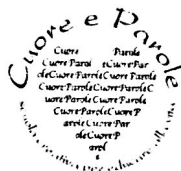 Cuore e Parole
Cuore Parole
Cuore Parol eCuore Par
oleCuore ParoleCuore Parole
Cuore ParoleCuore ParoleC
uore ParoleCuore Parole
Cuore ParoleCuore P
arole Cuore Par
oleCuore P
arol
e